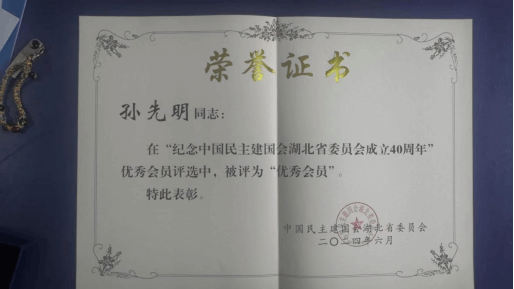 荣誉证书
孙先明同志：
在“纪念中国民主建国会湖北省委员会成立40周年”
优秀会员评选中，被评为“优秀会员”。
特此表彰。
中国民主建国会湖北省委员会
二〇二四年六月